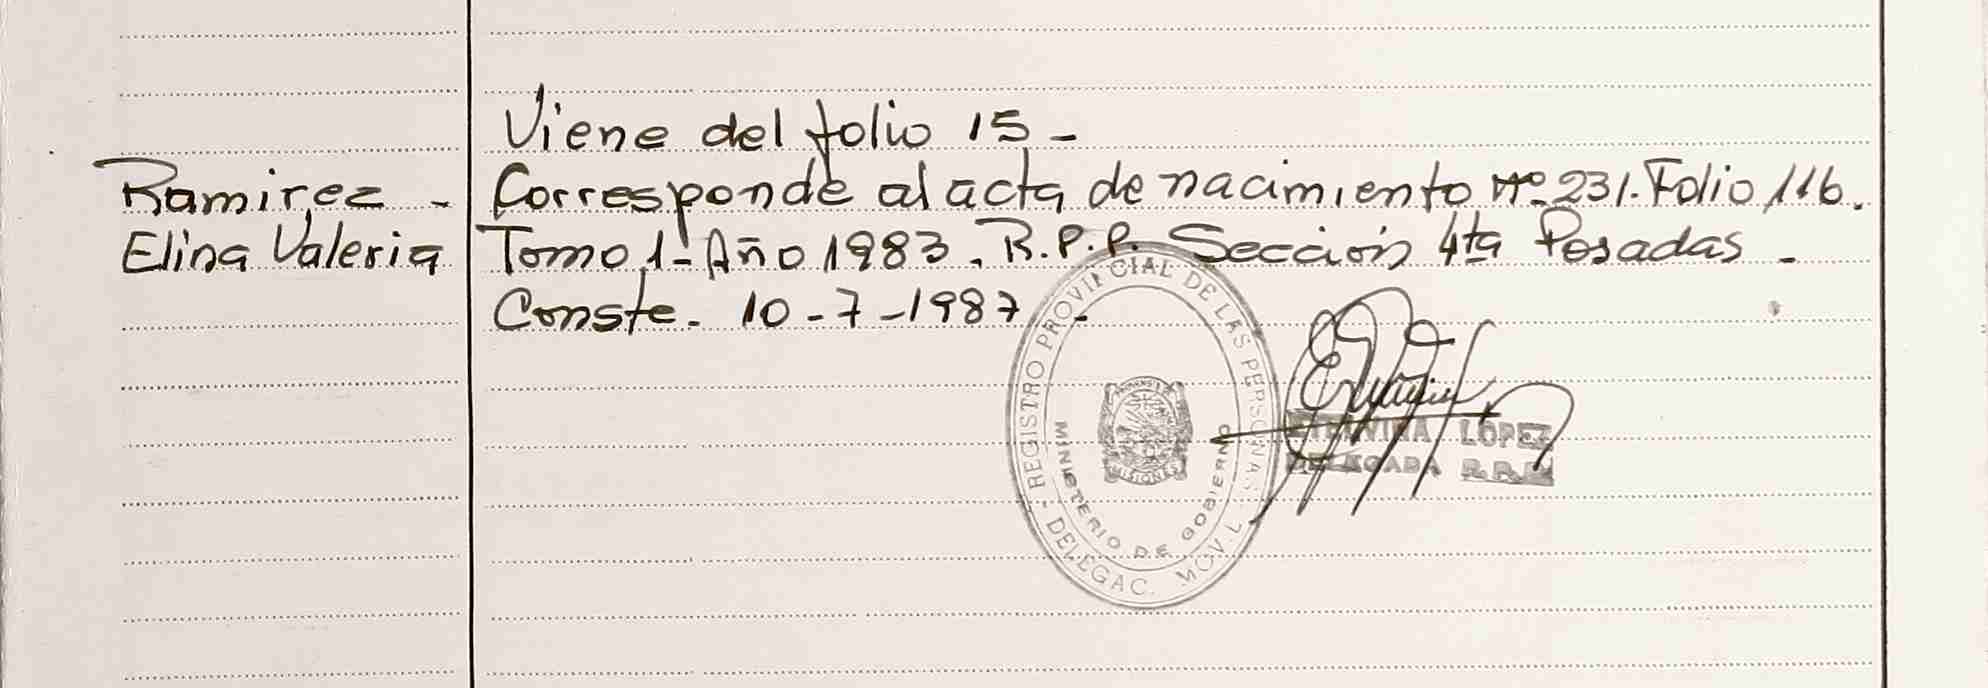 Viene del folio 15 -
Ramirez - Corresponde al acta de nacimiento Nº 231. Folio 116.
Elina Valeria Tomo 1- Año 1983. R.P.P. Sección 4ta Posadas -
Conste. 10-7-1987 -
REGISTRO PROVINCIAL DE LAS PERSONAS
DELEGAC. MOVIL
MINISTERIO DE GOBIERNO
MISIONES
LOPEZ
DELEGADA R.P.P.